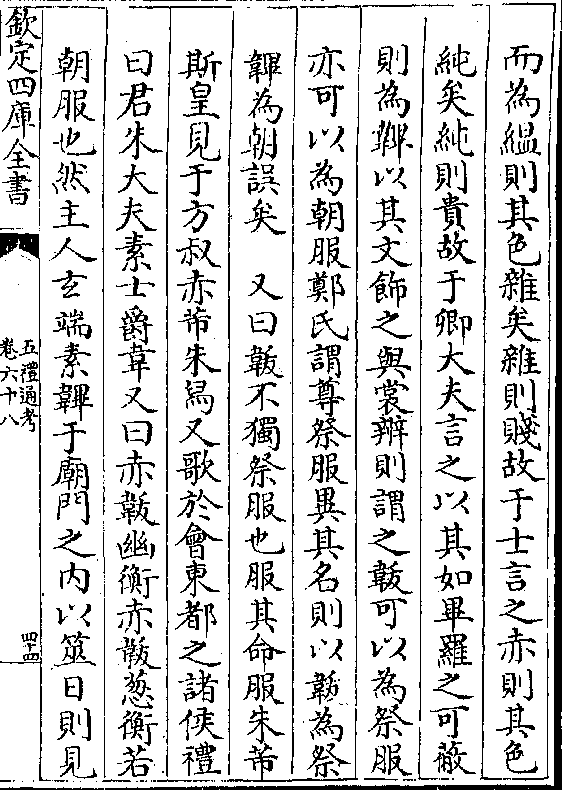 而為緼則其色雜矣雜則賤故于士言之赤則其色
純矣純則貴故于卿大夫言之以其如畢羅之可蔽
則為韠以其文飾之與裳辨則謂之韍可以為祭服
亦可以為朝服鄭氏謂尊祭服異其名則以韍為祭
韠為朝誤矣　又曰韍不獨祭服也服其命服朱芾
斯皇見于方叔赤芾朱舄又歌於會東都之諸侯禮
曰君朱大夫素士爵韋又曰赤韍幽衡赤韍葱衡若
朝服也然主人玄端素韠于廟門之内以筮日則見
欽定四庫全書
五禮通考
卷六十八
四十四